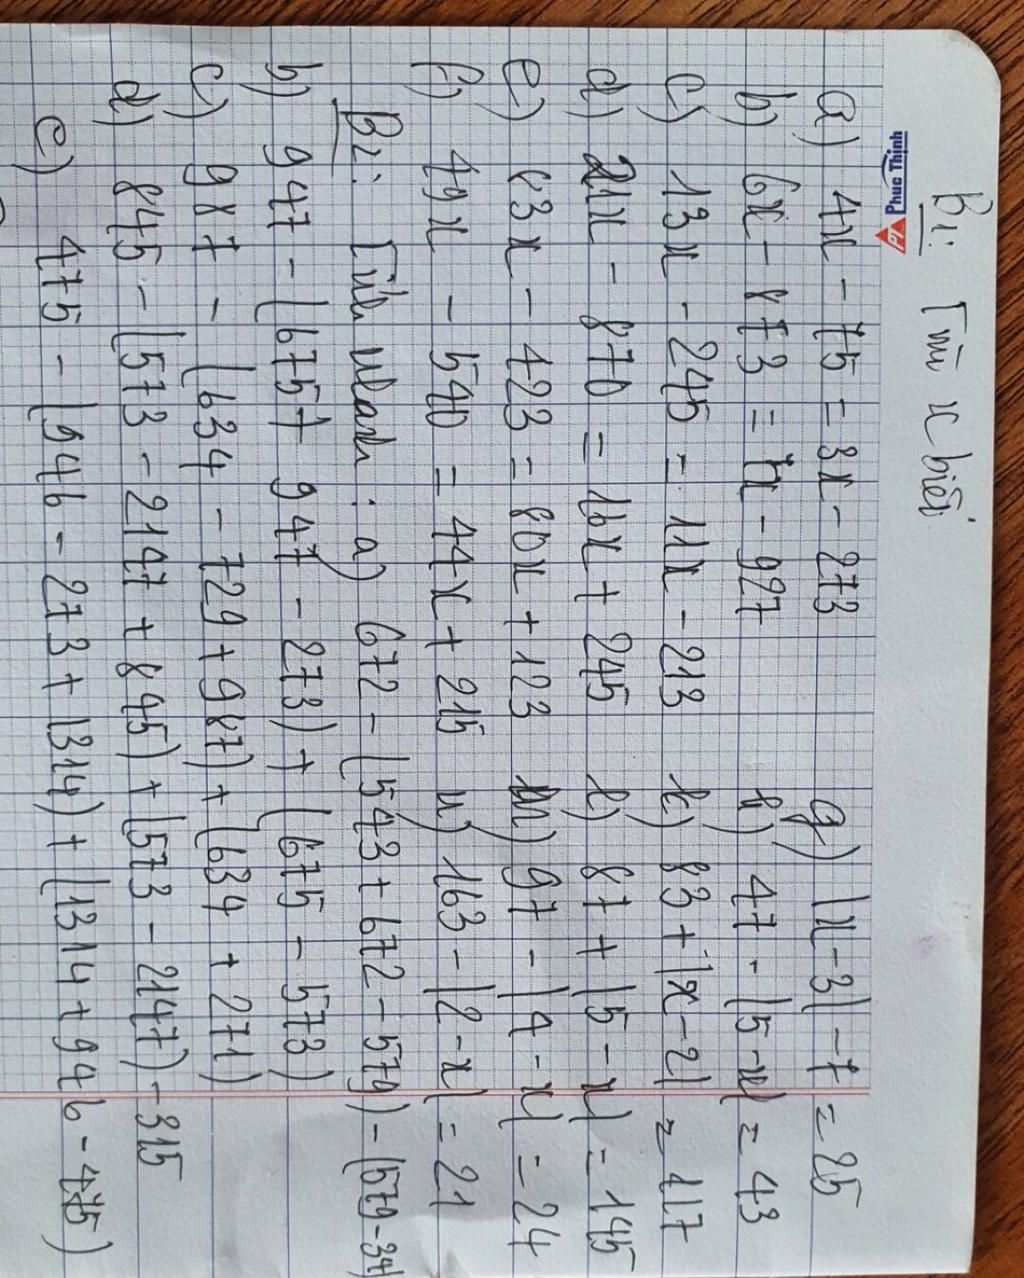 B1: Tìm x biết
Phuc Thinh
a) 4x - 75 = 3x - 273 g) |x - 3| - 7 = 25
b) 6x - 873 = 7x - 927 h) 47 - |5 - x| = 43
c) 13x - 245 = 11x - 213 k) 83 + |x - 2| = 117
d) 21x - 870 = 16x + 245 l) 87 + |5 - x| = 145
e) 83x - 423 = 80x + 123 m) 97 - |4 - x| = 24
f) 49x - 540 = 44x + 215 n) 163 - |2 - x| = 21
B2: Tính nhanh: a) 672 - (543 + 672 - 579) - (579 - 34
b) 947 - (675 + 947 - 273) + (675 - 573)
c) 987 - (634 - 729 + 987) + (634 + 271)
d) 845 - (573 - 2147 + 845) + (573 - 2147) - 315
e) 475 - (946 - 273 + 1314) + (1314 + 946 - 475)